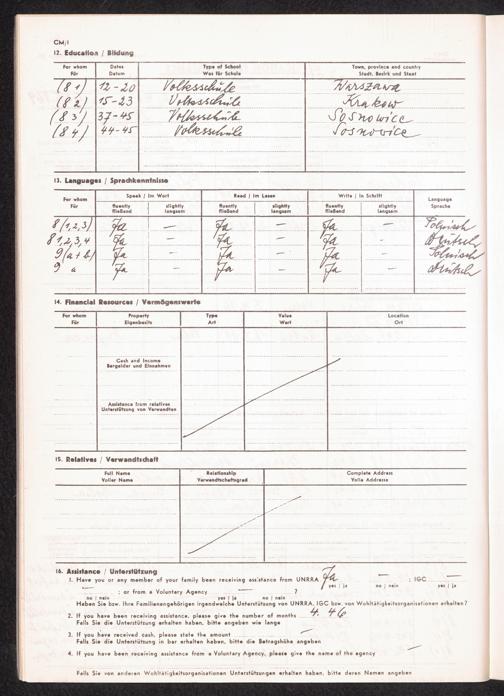 CM/1
12. Education / Bildung
For whom Dates Type of School Town, province and country
Für Datum Was für Schule Stadt, Bezirk und Staat
(81) 12-20 Volksschule Warszawa
(82) 15-23 Volksschule Krakow
(83) 37-45 Volksschule Sosnowice
(84) 44-45 Volksschule Sosnovice
13. Languages / Sprachkenntnisse
For whom Speak / Im Wort Read / Im Lesen Write / In Schrift Language
Für fluently slightly fluently slightly fluently slightly Sprache
fließend langsam fließend langsam fließend langsam
8(1,2,3) Ja — Ja — Ja — Polnisch
8 1,2,3,4 Ja — Ja — Ja - Deutsch
9(a+b) Ja — Ja — Ja - Polnisch
9 a Ja - Ja - Ja - Deutsch
14. Financial Resources / Vermögenswerte
For whom Property Type Value Location
Für Eigenbesitz Art Wert Ort
Cash and Income
Bargelder und Einnahmen
Assistance from relatives
Unterstützung von Verwandten
15. Relatives / Verwandtschaft
Full Name Relationship Complete Address
Voller Name Verwandtschaftsgrad Volle Addresse
16. Assistance / Unterstützung
1. Have you or any member of your family been receiving assistance from UNRRA Ja — : IGC —
yes / ja no / nein yes / ja
— : or from a Voluntary Agency — ?
no / nein yes / ja no / nein
Haben Sie bzw. Ihre Familienangehörigen irgendwelche Unterstützung von UNRRA, IGC bzw. von Wohltätigkeitsorganisationen erhalten?
2. If you have been receiving assistance, please give the number of months 4. 46
Falls Sie Unterstützung erhalten haben, bitte angeben wie lange
3. If you have received cash, please state the amount —
Falls Sie die Unterstützung in bar erhalten haben, bitte die Betragshöhe angeben
4. If you have been receiving assistance from a Voluntary Agency, please give the name of the agency —
Falls Sie von anderen Wohltätigkeitsorganisationen Unterstützungen erhalten haben, bitte deren Namen angeben